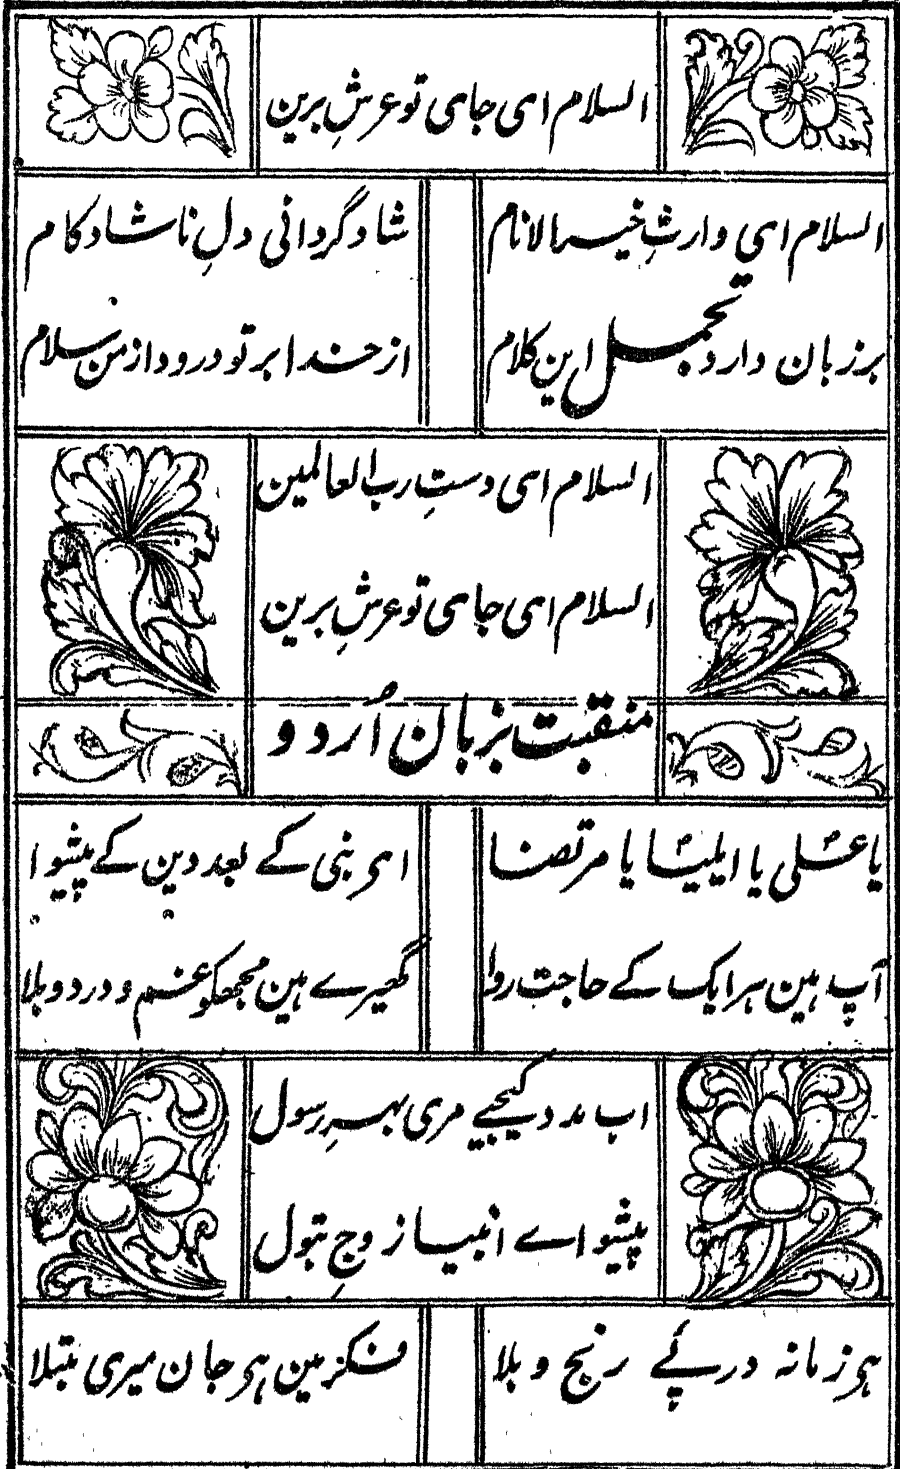 السلام ای جای تو عرشِ برین
السلام ای وارثِ خیرالانام
شاد گردانی دلِ ناشاد کام
بر زبان دارد تجمل این کلام
از خدا بر تو درود از من سلام
السلام ای دستِ رب العالمین
السلام ای جای تو عرشِ برین
منقبت بزبان اُردو
یا علیؑ یا ایلیاؑ یا مرتضا
اہی نبی کے بعد دین کے پیشوا
آپ ہین ہر ایک کے حاجت روا
گھیرے ہین مجھکو غم و درد و بلا
اب مدد کیجیے مری بہرِ رسول
پیشواے انبیا زوجِ بتول
ہی زمانہ درپئے رنج و بلا
فکر مین ہی جان میری مبتلا